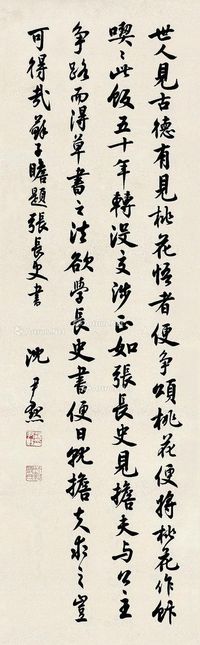 世人見古德有見桃花悟者便争頌桃花便將桃花作飰
喫喫此飯五十年轉没交涉正如張長史見擔夫与公主
争路而得草書之法欲學長史書便日就擔夫求之豈
可得哉蘇子瞻題張長史書
沈尹默